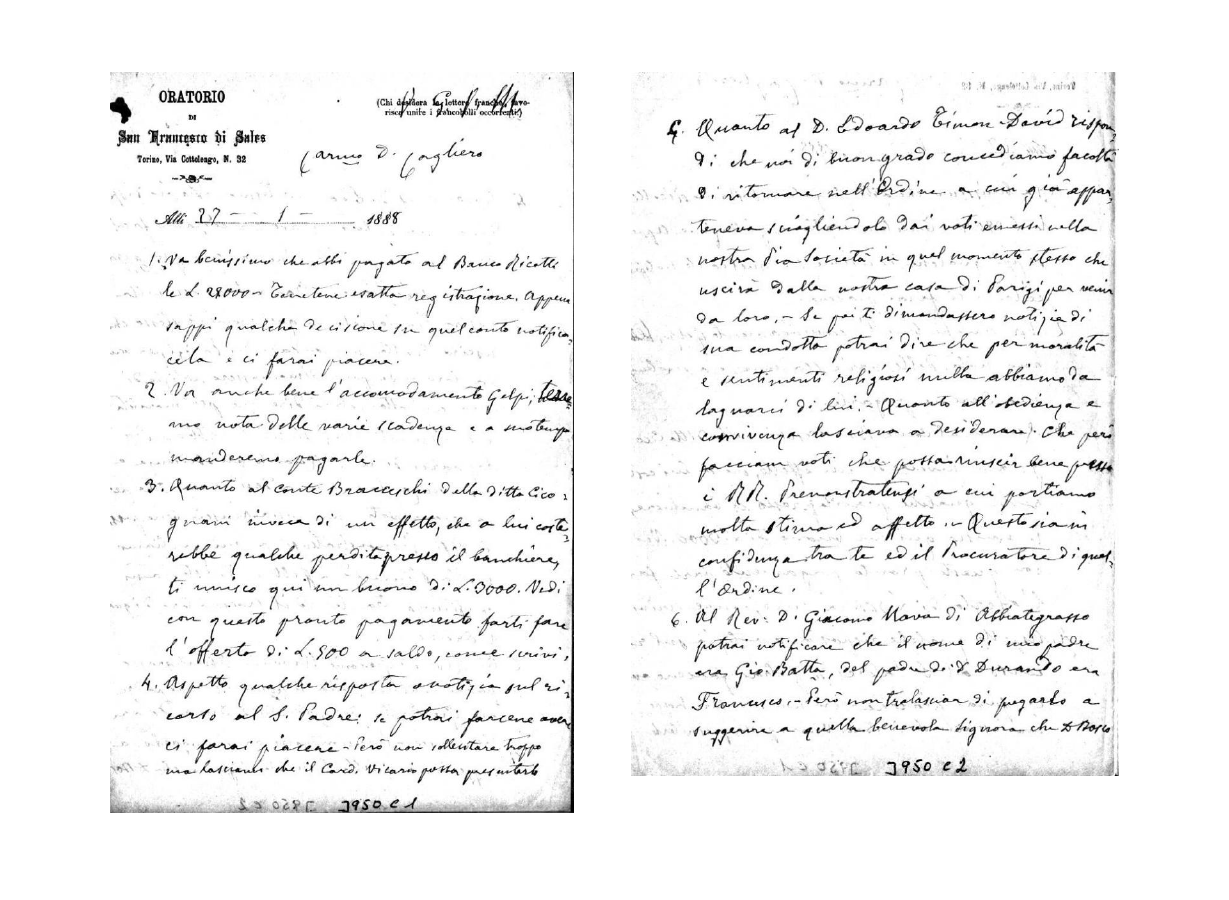 ORATORIO
DI
San Francesco di Sales
Torino, Via Cottolengo, N. 32
(Chi desidera la lettera franca, favo-
risca unire i francobolli occorrenti)
Carmo D. Cagliero
Alli 27 - 1 - 1888
1. Va benissimo che abbi pagato al Banco Ricotti
le L. 28000 - Terretene esatta registrazione. Appena
sappi qualche decisione su quel conto notifica-
cela e ci farai piacere.
2. Va anche bene l'accomodamento Gelpi,
mo nota delle varie scadenze e a suo tempo
manderemo pagarle.
3. Quanto al conte Bracceschi della ditta Cico=
gnani invece di un effetto, che a lui coste-
rebbe qualche perdita presso il banchiere,
ti unisco qui un buono di L. 3000. Vedi
con questo pronto pagamento farti fare
l'offerta di L. 500 a saldo, come scrivi.
4. Aspetto qualche risposta o notizia sul ri-
corso al S. Padre: se potrai farcene avere
ci farai piacere - Però non sollecitare troppo
ma lasciami che il Card. Vicario possa presentarlo
J950 C1
5. Quanto al D. Edoardo Timon-David rispon-
di che noi di buon grado concediamo facoltà
di ritornare nell'Ordine a cui già appar-
teneva sciogliendolo dai voti emessi nella
nostra Pia Società in quel momento stesso che
uscirà dalla nostra casa di Parigi per venir
da loro. - Se poi ti dimandassero notizia di
sua condotta potrai dire che per moralità
e sentimenti religiosi nulla abbiamo da
lagnarci di lui. - Quanto all'obedienza e
convivenza lasciava a desiderare. Che però
facciam voti che possa riuscir bene presso
i RR. Premonstratensi a cui portiamo
molta stima ed affetto. - Questo sia in
confidenza tra te ed il Procuratore di quel-
l'Ordine.
6. Al Rev. D. Giacomo Nava di Abbiategrasso
potrai notificare che il nome di mio padre
era Gio Batta, del padre di D. Durando era
Francesco. - Però non tralasciar di pregarlo a
suggerire a quella benevola signora che D Bosco
J950 C2